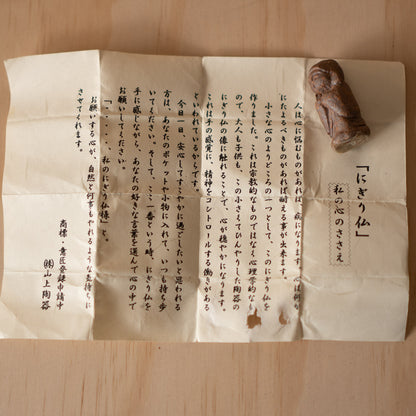 「にぎり仏」
私の心のささえ
人は心に悩むものがあれば、病になります
にたよるべきものがあれば耐える事が出来ます
小さな心のよりどころの一つとして、このにぎり仏を
作りました。これは宗教的なものではなく心理学的な
ので、大人も子供も、この小さくてひんやりした陶器の
にぎり仏の像に触れることで、心が穏やかになります。
これは手の感覚に、精神をコントロールする働きがある
といわれているからです。
今日一日、安心してすこやかに過ごしたいと思われる
方は、あなたのポケットや小物に入れて、いつも持ち歩
いてください。そして、ここ一番という時、にぎり仏を
手に感じながら、あなたの好きな言葉を選んで心の中で
お願いしてください。
「……、私のにぎり仏様」と。
お願いする心が、自然と何事もやれるような気持ちに
させてくれます。
商標・意匠登録申請中
㈱山上陶器